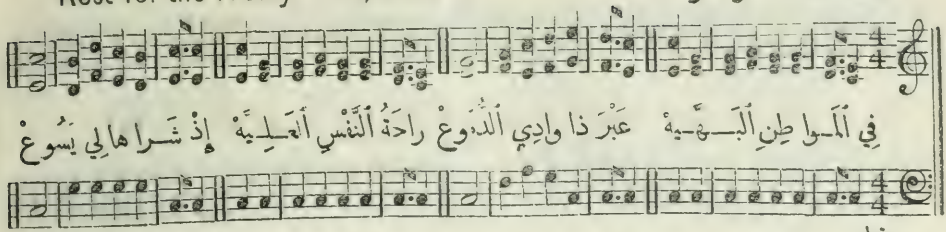 Rest for the
فِي ٱلْمَـوا طِنِ ٱلْبَـهِـيَّهْ عَبْرَ ذا وادِي ٱلدُّمُوعْ راحَةُ ٱلنَّفْسِ ٱلْعَـلِـيَّهْ إِذْ شَـرا ها لِي يَسُوعْ